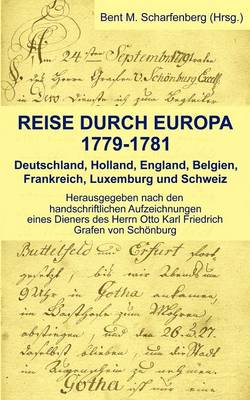 Bent M. Scharfenberg (Hrsg.)
Am 24sten September 1779
des Herrn Grafen v. Schönburg Excell.
in Dero Dienste ich zum Begleiter
REISE DURCH EUROPA
1779-1781
Deutschland, Holland, England, Belgien,
Frankreich, Luxemburg und Schweiz
Herausgegeben nach den
handschriftlichen Aufzeichnungen
eines Dieners des Herrn Otto Karl Friedrich
Grafen von Schönburg
Buttelstedt und Erfurt fort-
gesetzt, bis wir Abends um
9 Uhr in Gotha ankamen,
im Gasthofe zum Mohren
abstiegen, und den 26. & 27.
daselbst blieben, um die Stadt
im Augenschein zu nehmen.
Gotha ist nur eine